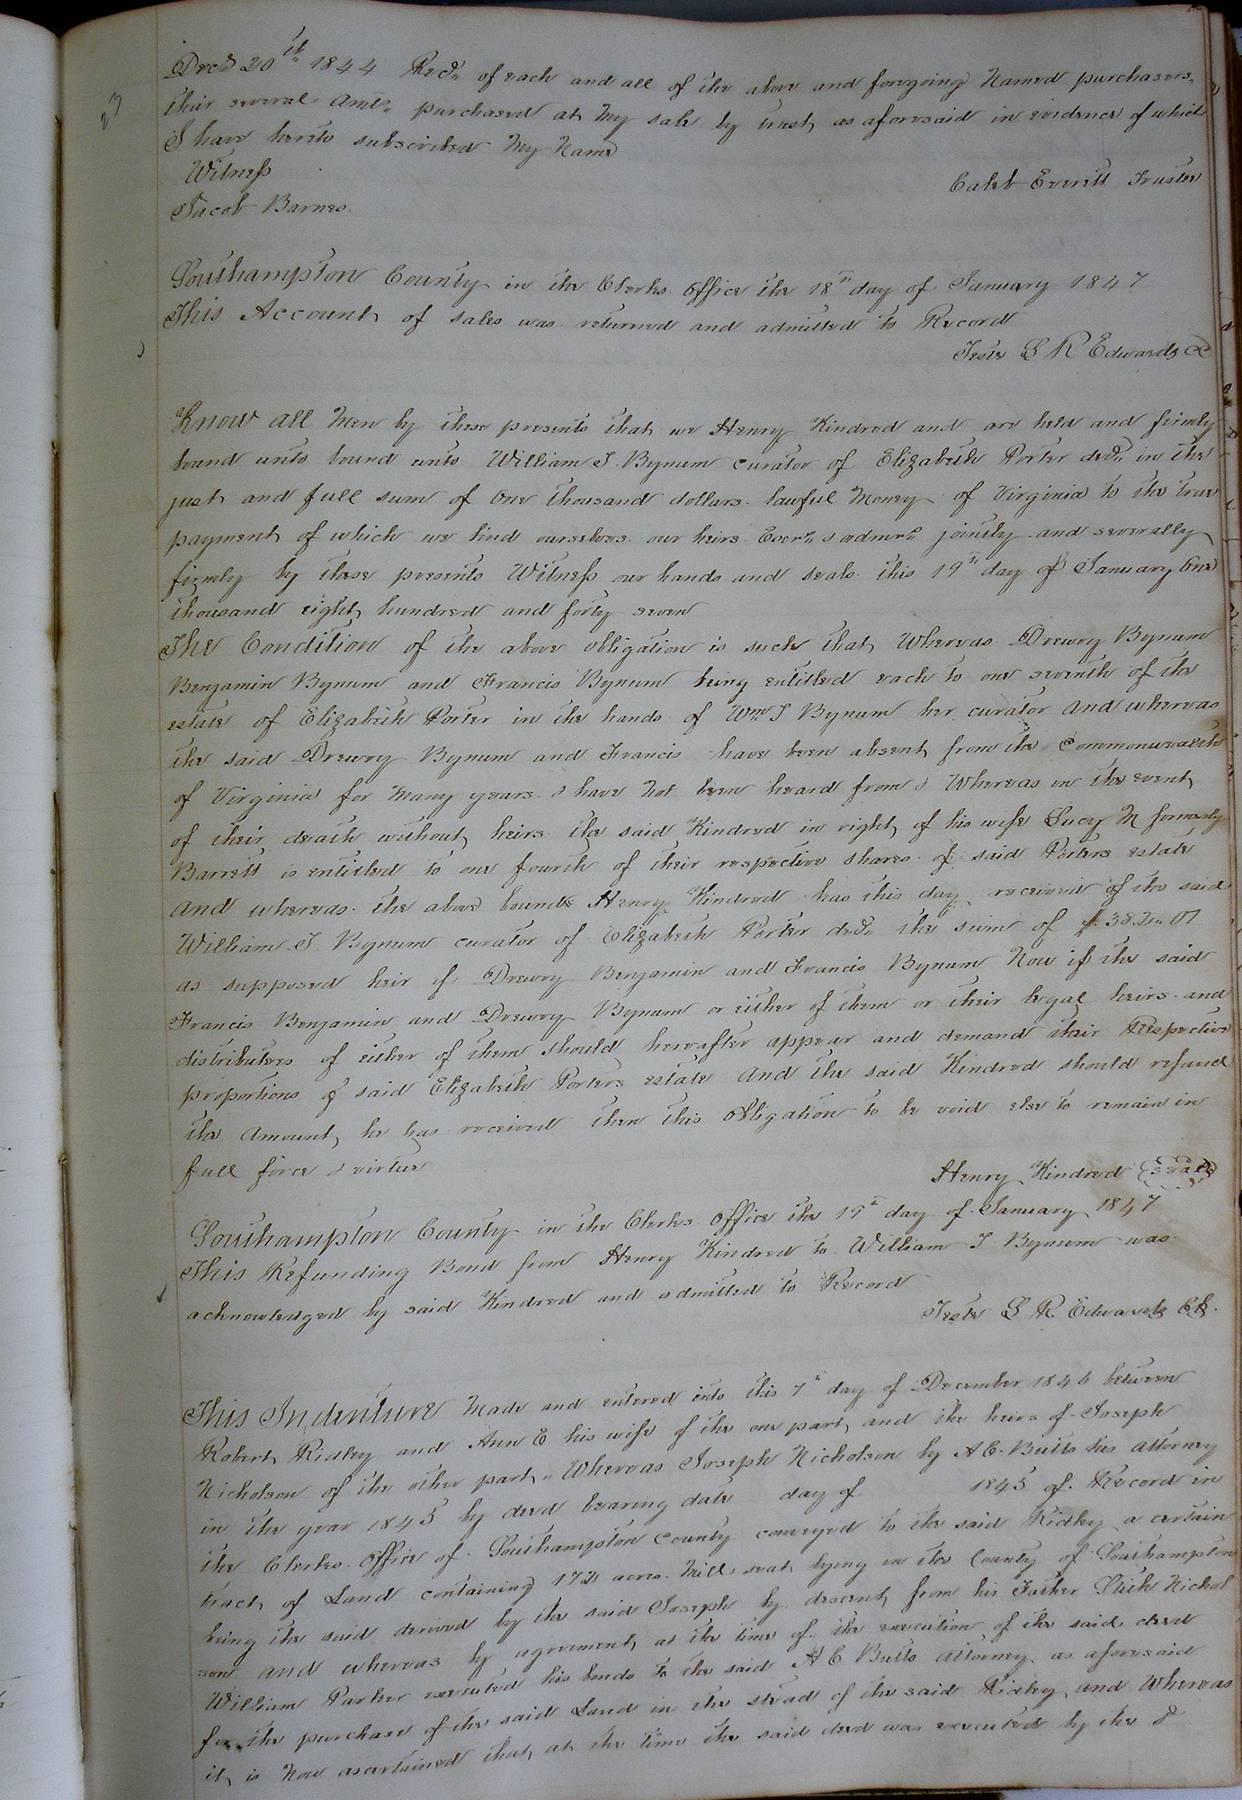 Decr 20th 1844 Recd. of each and all of the above and foregoing Named purchasers
their several Amts. purchased at My sale by trust, as aforesaid in evidence of which
I have hereto subscribed My Name
Witness
Caleb Everitt Trustee
Jacob Barnes.
Southampton County in the Clerks Office the 18th day of January 1847
This Account of sales was returned and admitted to Record
Teste L R Edwards
Know all Men by these presents that we Henry Kindred and are held and firmly
bound unto bound unto William J. Bynum curator of Elizabeth Porter decd. in the
just and full sum of One thousand dollars lawful Money of Virginia to the true
payment of which we bind ourselves our heirs Execrs. & admrs. jointly and severally
firmly by these presents Witness our hands and seals this 19th day of January One
thousand eight hundred and forty seven
The Condition of the above obligation is such that Whereas Drewry Bynum
Benjamin Bynum and Francis Bynum being entitled each to one seventh of the
estate of Elizabeth Porter in the hands of Wm. J Bynum her curator And whereas
the said Drewry Bynum and Francis have been absent from the Commonwealth
of Virginia for Many years & have Not been heard from & Whereas in the event
of their death without heirs the said Kindred in right of his wife Lucy M formerly
Barrett is entitled to one fourth of their respective shares of said Porters estate
And whereas the above bound Henry Kindred has this day received of the said
William J. Bynum curator of Elizabeth Porter decd. the sum of $ 382.07
as supposed heir of Drewry Benjamin and Francis Bynum Now if the said
Francis Benjamin and Drewry Bynum or either of them or their legal heirs and
distributees of either of them should hereafter appear and demand their Respective
proportions of said Elizabeth Porters estate And the said Kindred should refund
the Amount he has received then this Obligation to be void else to remain in
full force & virtue
Henry Kindred Seal
Southampton County in the Clerks Office the 19th day of January 1847
This Refunding Bond from Henry Kindred to William J Bynum was
acknowledged by said Kindred and admitted to Record
Teste L R. Edwards Clk.
This Indenture Made and entered into this 7th day of December 1846 between
Robert Ridley and Ann E his wife of the one part, and the heirs of Joseph
Nicholson of the other part. Whereas Joseph Nicholson by A C. Butts his Attorney
in the year 1845 by deed bearing date day of 1845 of Record in
the Clerks Office of Southampton County conveyed to the said Ridley a certain
tract of Land containing acres Mill seat lying in the County of Southampton
being the said derived by the said Joseph by descent from his Father Nichol
son and whereas by agreement at the time of the execution of the said deed
William Parker executed his bonds to the said A C Butts Attorney as aforesaid
for the purchase of the said Land in the stead of the said Ridley, and Whereas
it is Now ascertained that, at the time the said deed was executed by the &